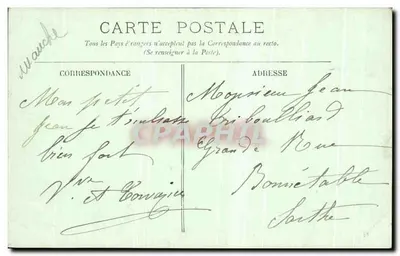 Manche
CARTE POSTALE
Tous les Pays Étrangers n'acceptent pas la Correspondance au recto.
(Se renseigner à la Poste).
CORRESPONDANCE
Mon petit
Jean je t'embrasse
bien fort
Vve A
ADRESSE
Monsieur Jean
Triboulliard
Grande Rue
Bonnétable
Sarthe
CPARAMA